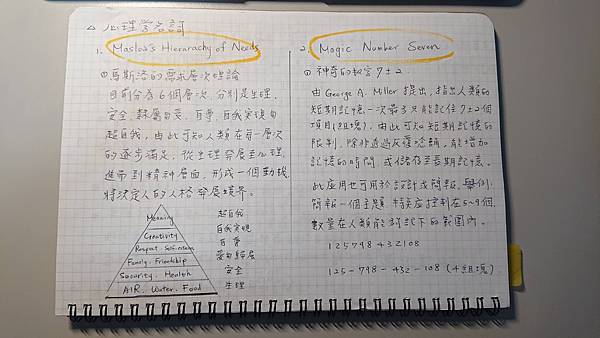 △ 心理學名詞
1. Maslow's Hierarchy of Needs
① 馬斯洛的需求層次理論
目前分為6個層次,分別是生理、
安全、隸屬與愛、自尊、自我實現與
超自我,由此可知人類在每一層次
的逐步滿足,從生理發展至心理,
進而到精神層面,形成一個動機
特決定人的人格發展境界。
Meaning 超自我
Creativity 自我實現
Respect Self-esteem 自尊
Family. Friendship 愛與歸屬
Security. Health 安全
AIR. Water. Food 生理
2. Magic Number Seven
① 神奇的數字 7±2
由 George A. Miller 提出,指出人類的
短期記憶一次最多只能記住 7±2 個
項目(組塊),由此可知短期記憶的
限制,除非透過反覆唸誦,能增加
記憶的時間或儲存至長期記憶。
此應用也可用於設計或簡報,舉例:
簡報一個主題 特點應控制在5~9個,
數量在人類能記下的範圍內。
125798432108
125-798-432-108 (4組塊)